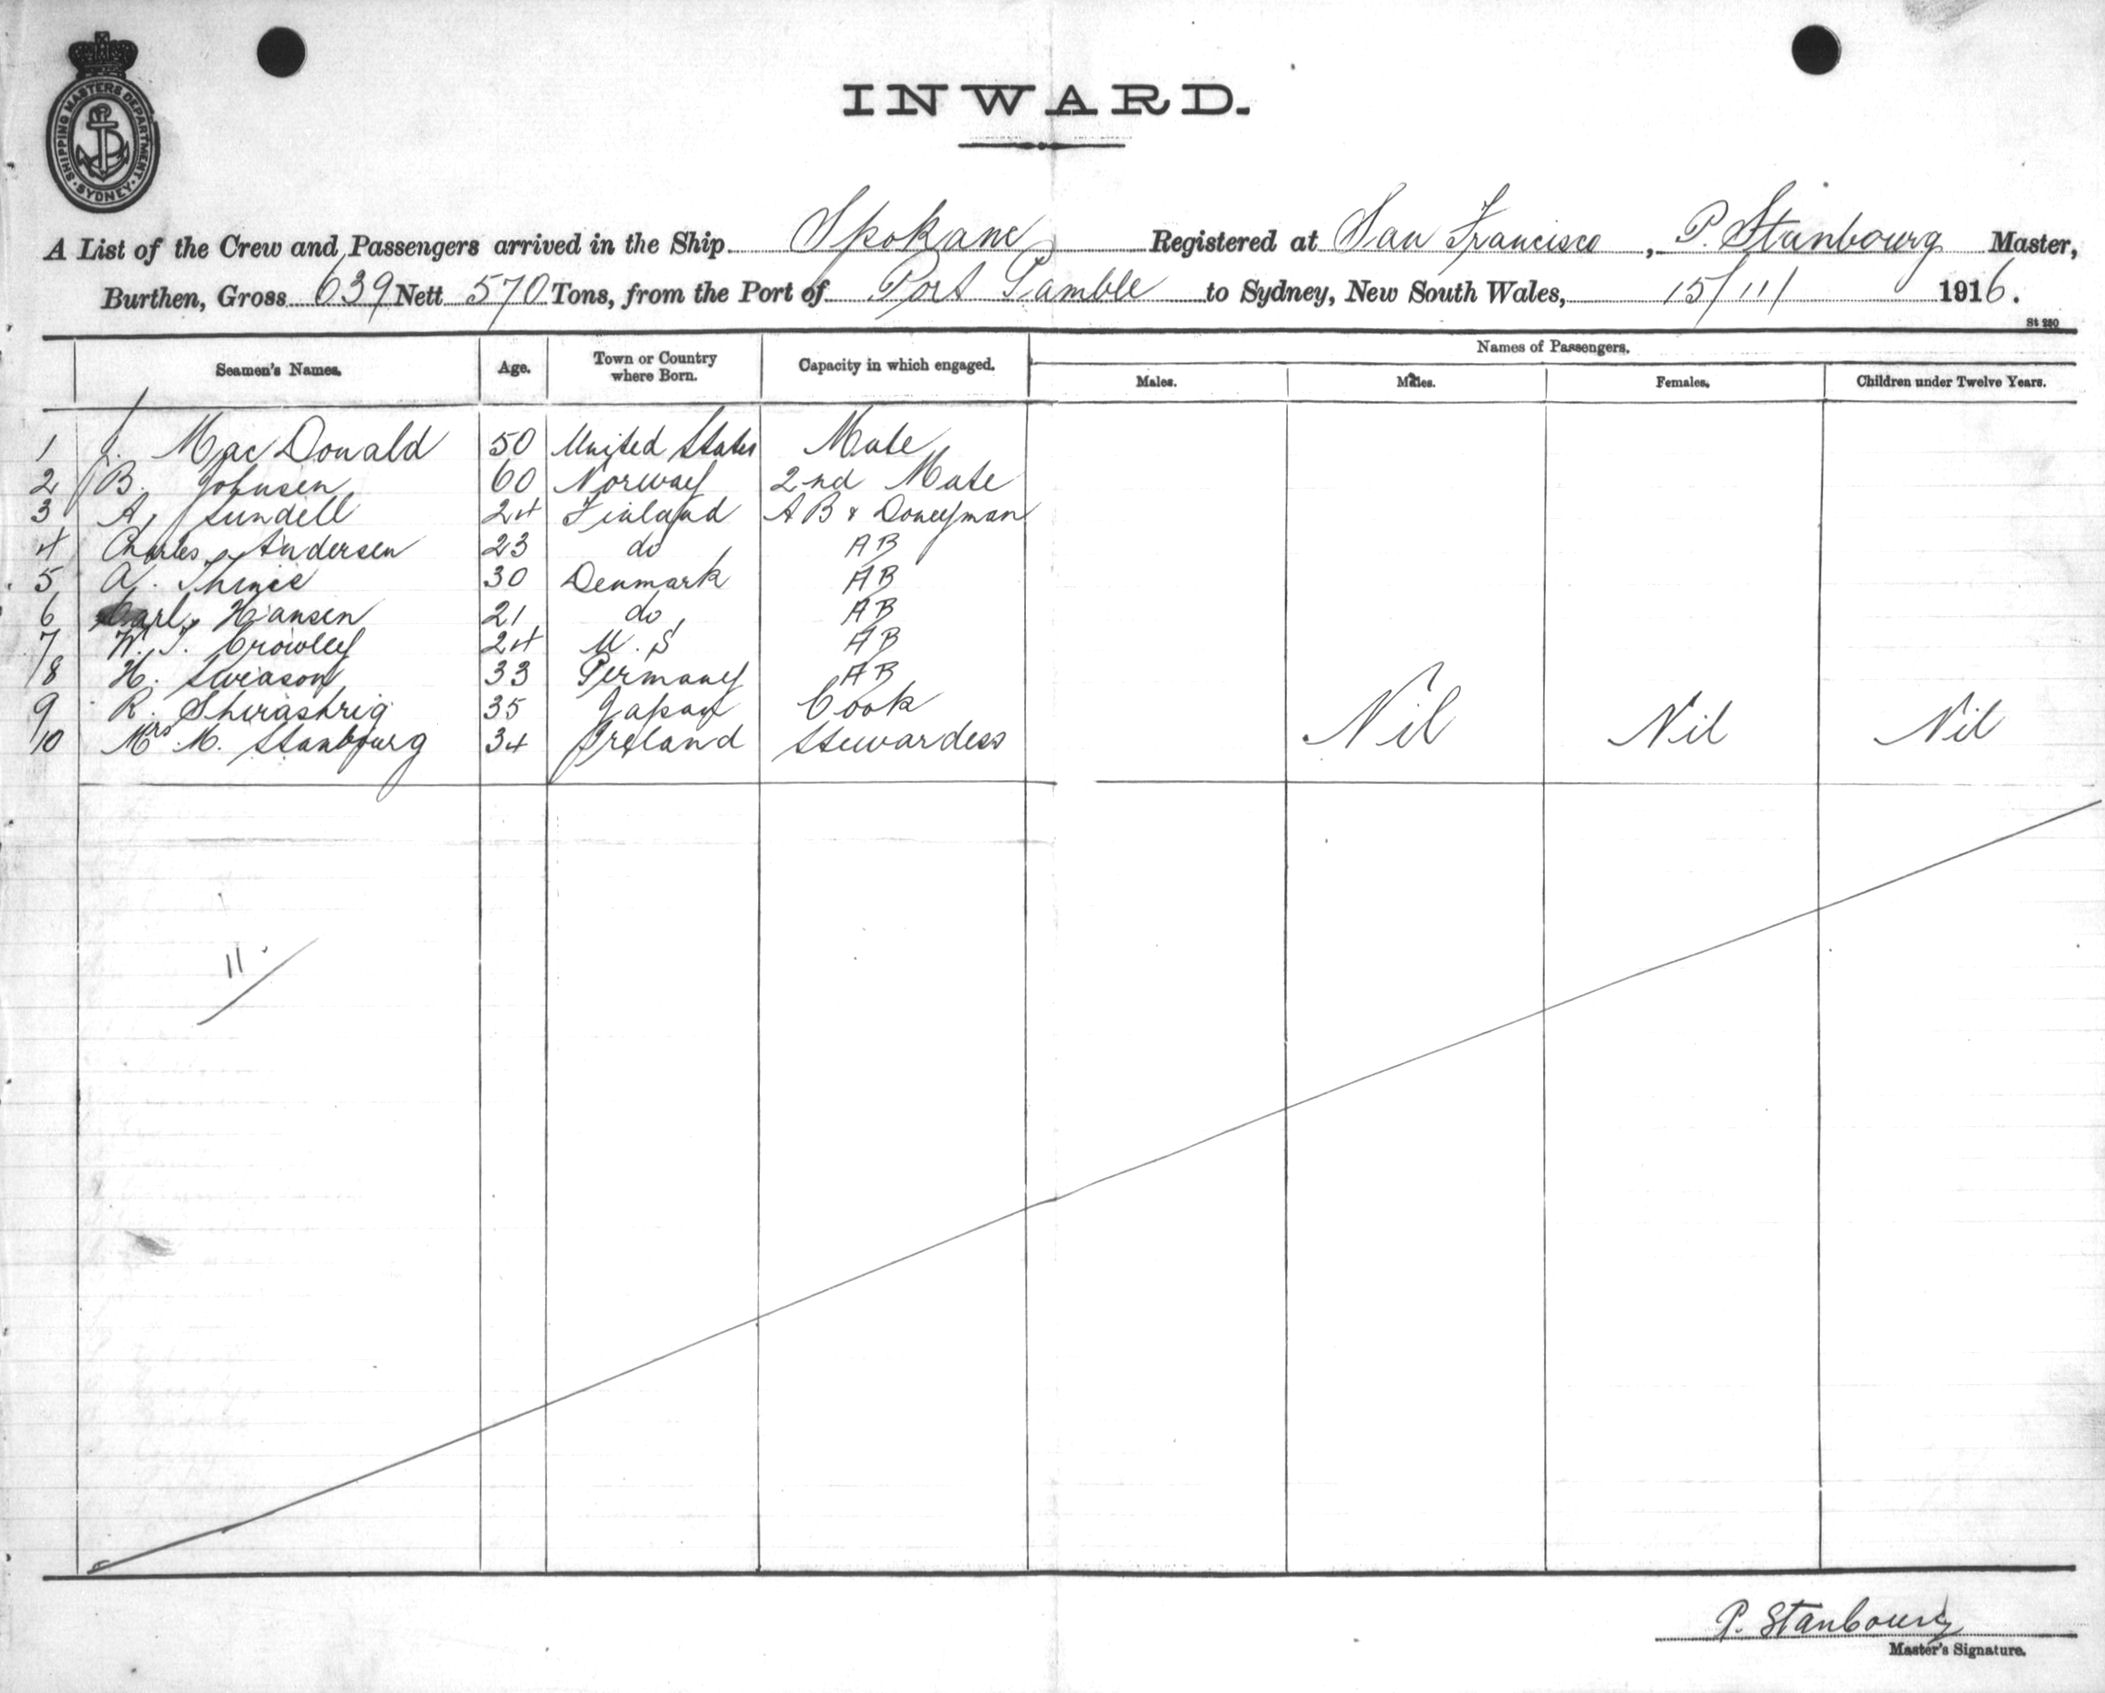 SHIPPING MASTERS DEPARTMENT. SYDNEY.
INWARD.
A List of the Crew and Passengers arrived in the Ship Spokane Registered at San Francisco, P. Stanbourg Master,
Burthen, Gross 639 Nett 570 Tons, from the Port of Port Gamble to Sydney, New South Wales, 15/11/ 1916.
St 280
Seamen's Names. Age. Town or Country where Born. Capacity in which engaged. Names of Passengers.
Males. Males. Females. Children under Twelve Years.
1 J. MacDonald 50 United States Mate
2 B. Johnsen 60 Norway 2nd Mate
3 A. Sundell 24 Finland AB & Doneyman
4 Charles Andersen 23 do AB
5 A. 30 Denmark AB
6 Carl Hansen 21 do AB
7 W. T. Crowley 24 U.S AB
8 H. 33 Germany AB
9 R. 35 Japan Cook
10 Mrs M. Stanbourg 34 Ireland Stewardess Nil Nil Nil
11.
P. Stanbourg
Master's Signature.